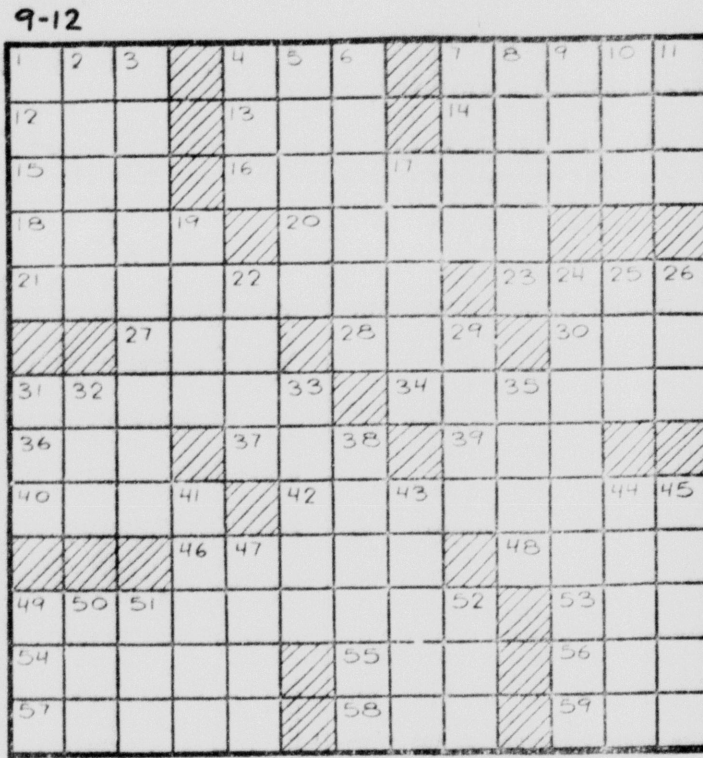 9-12
1 2 3 4 5 6 7 8 9 10 11
12 13 14
15 16 17
18 19 20
21 22 23 24 25 26
27 28 29 30
31 32 33 34 35
36 37 38 39
40 41 42 43 44 45
46 47 48
49 50 51 52 53
54 55 56
57 58 59